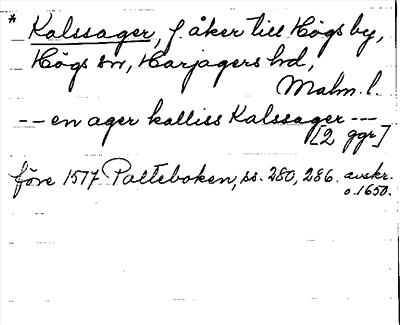 * Kalssager, f. åker till Högs by,
Högs sn, Harjagers hd,
Malm. l.
-- en ager kalliss Kalssager ---
[2 ggr]
före 1577 Palteboken, ss. 280, 286. avskr.
o. 1650.